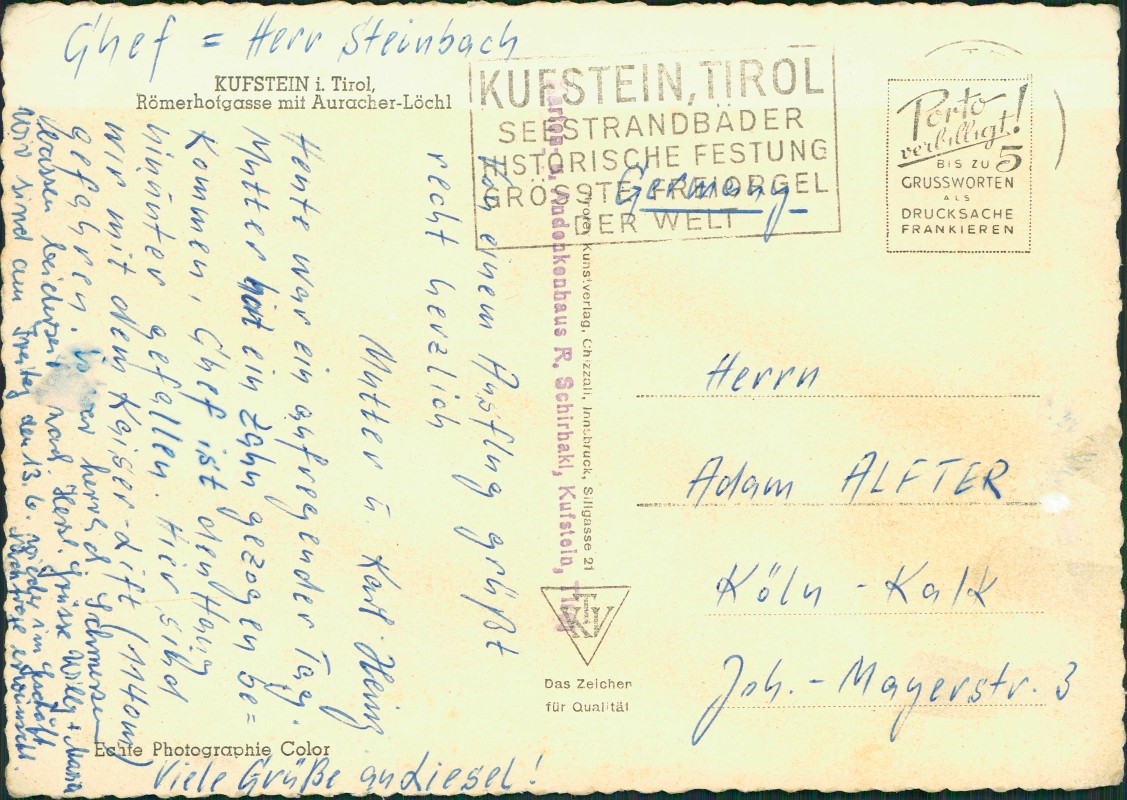 Chef = Herr Steinbach
KUFSTEIN i. Tirol,
Römerhofgasse mit Auracher-Löchl
Von einem Ausflug grüßt
recht herzlich
Mutter u. Karl-Heinz
Heute war ein aufregender Tag.
Mutter hat ein Zahn gezogen be=
kommen, Chef ist den Hang
hinunter gefallen. Hier sind
wir mit dem Kaiser-Lift (1140m)
gefahren. herrlich Schmerzen
lassen beiderseits nach. Herzl. Grüsse Willy + Maria
Wir sind am Freitag den 13.6. wieder im Geschäft
Nachfrage erwünscht.
Viele Grüße an Liesel!
Echte Photographie Color
Karten- u. Andenkenhaus R. Schirhakl, Kufstein, Tirol
Tiroler Kunstverlag, Chizzali, Innsbruck, Sillgasse 21
TKV
Das Zeichen
für Qualität
KUFSTEIN, TIROL
SEESTRANDBÄDER
HISTORISCHE FESTUNG
GRÖSSTE FREIORGEL
DER WELT
Germany
Porto
verbilligt!
BIS ZU 5
GRUSSWORTEN
ALS
DRUCKSACHE
FRANKIEREN
Herrn
Adam ALFTER
Köln - Kalk
Joh.- Mayerstr. 3